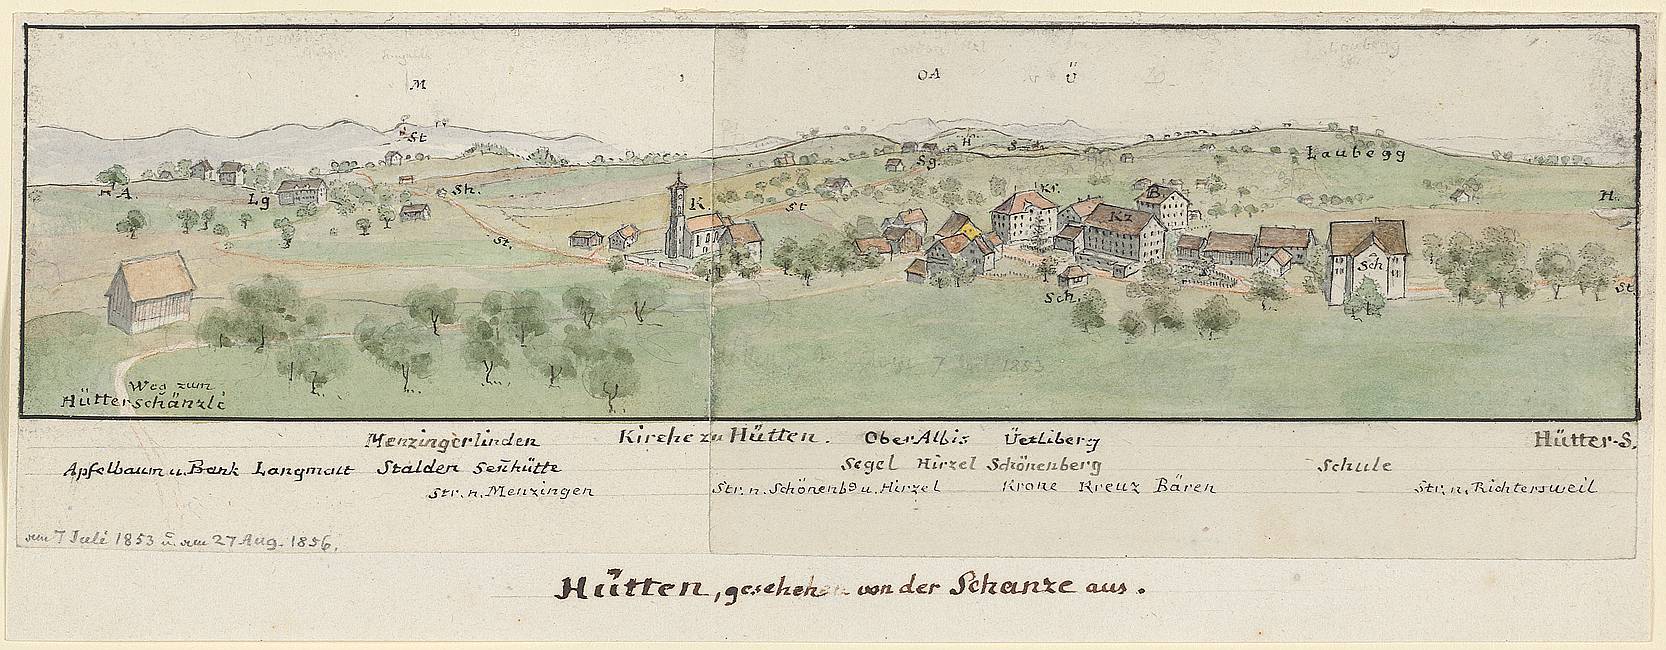 M OA Ü
St H S
Sg. Laubegg
A. Lg Sh. K. Kr. B H.
St Kz
St. Sch
Sch. St.
7 Juli 1853
Weg zum
Hütterschänzli
Menzingerlinden Kirche zu Hütten. Ober Albis Üetliberg Hütter-S.
Apfelbaum u. Bank Langmatt Stalden Señhütte Segel Hirzel Schönenberg Schule
Str. n. Menzingen Str. n. Schönenbg u. Hirzel Krone Kreuz Bären Str. n. Richtersweil
am 7 Juli 1853 u. am 27 Aug. 1856.
Hütten, gesehen von der Schanze aus.